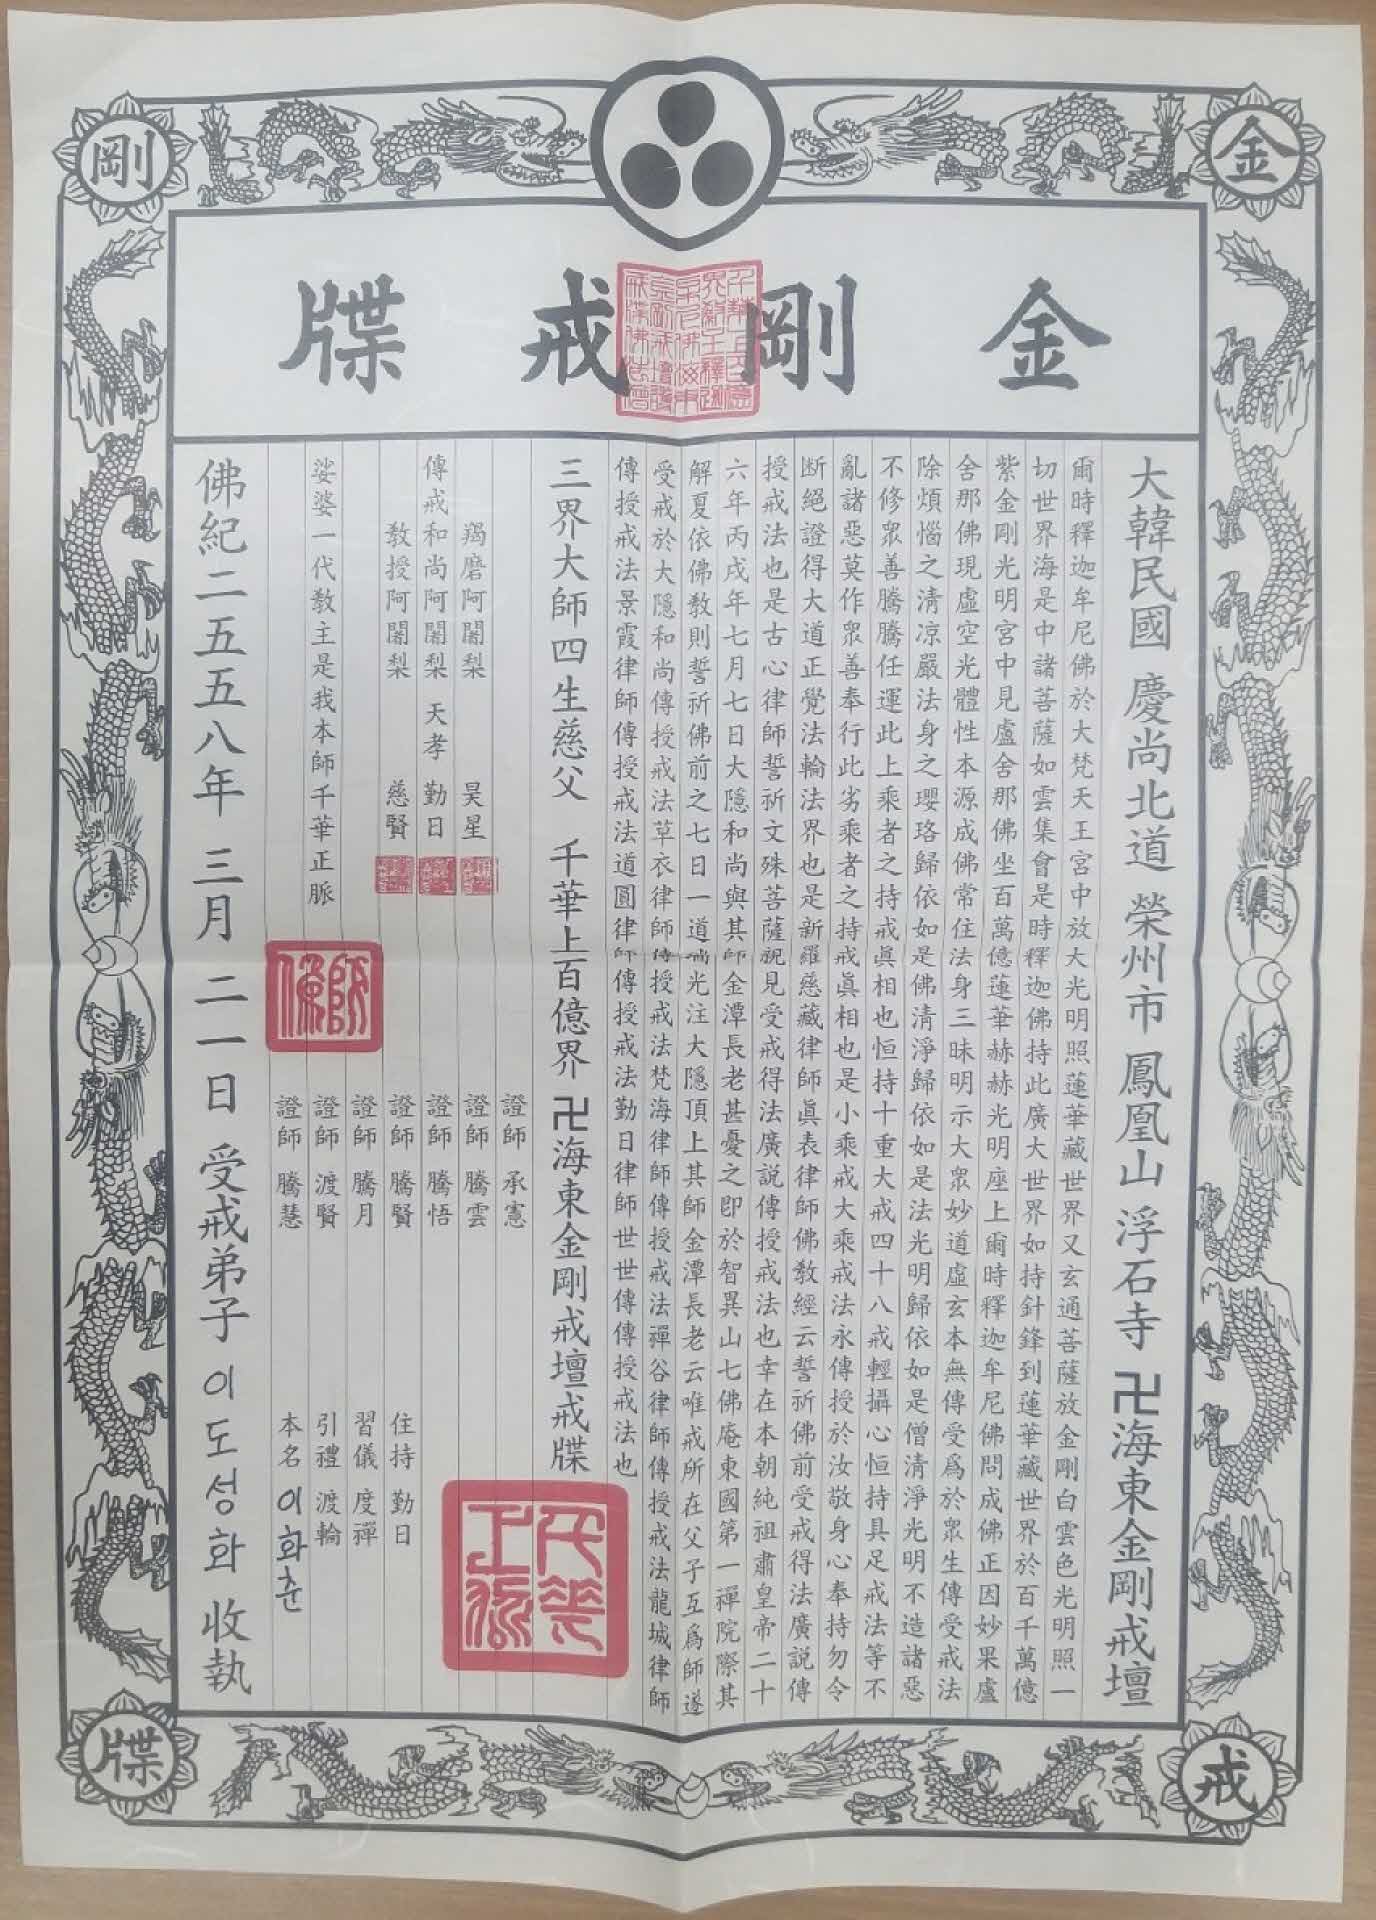 金剛戒牒
大韓民國 慶尚北道 榮州市 鳳凰山 浮石寺 卍海東金剛戒壇
爾時釋迦牟尼佛於大梵天王宮中放大光明照蓮華藏世界又玄通菩薩放金剛白雲色光明照一
切世界海是中諸菩薩如雲集會是時釋迦佛持此廣大世界如持針鋒到蓮華藏世界於百千萬億
紫金剛光明宮中見盧舍那佛坐百萬億蓮華赫赫光明座上爾時釋迦牟尼佛問成佛正因妙果盧
舍那佛現虛空光體性本源成佛常住法身三昧明示大眾妙道虛玄本無傳受爲於眾生傳受戒法
除煩惱之清凉嚴法身之瓔珞歸依如是佛清淨歸依如是法光明歸依如是僧清淨光明不造諸惡
不修眾善騰騰任運此上乘者之持戒眞相也恒持十重大戒四十八戒輕攝心恒持具足戒法等不
亂諸惡莫作眾善奉行此劣乘者之持戒眞相也是小乘戒大乘戒法永傳授於汝敬身心奉持勿令
断絕證得大道正覺法輪法界也是新羅慈藏律師眞表律師佛教經云誓祈佛前受戒得法廣説傳
授戒法也是古心律師誓祈文殊菩薩祝見受戒得法廣説傳授戒法也幸在本朝純祖肅皇帝二十
六年丙戌年七月七日大隱和尚與其師金潭長老甚憂之即於智異山七佛庵東國第一禪院際其
解夏依佛教則誓祈佛前之七日一道光注大隱頂上其師金潭長老云唯戒所在父子互爲師遂
受戒於大隱和尚傳授戒法草衣律師傳授戒法梵海律師傳授戒法禪谷律師傳授戒法龍城律師
傳授戒法景霞律師傳授戒法道圓律師傳授戒法勤日律師世世傳傳授戒法也
三界大師四生慈父 千華上百億界 卍海東金剛戒壇戒牒
證師 承憲
羯磨阿闍梨 昊星
證師 騰雲
傳戒和尚阿闍梨 天孝 勤日
證師 騰悟
教授阿闍梨 慈賢
證師 騰賢
住持 勤日
證師 騰月
習儀 度禪
娑婆一代教主是我本師千華正脈
證師 渡賢
引禮 渡輪
證師 騰慧
本名 이화춘
佛紀二五五八年 三月 二一日 受戒弟子 이도성화 收執
金
剛
戒
牒